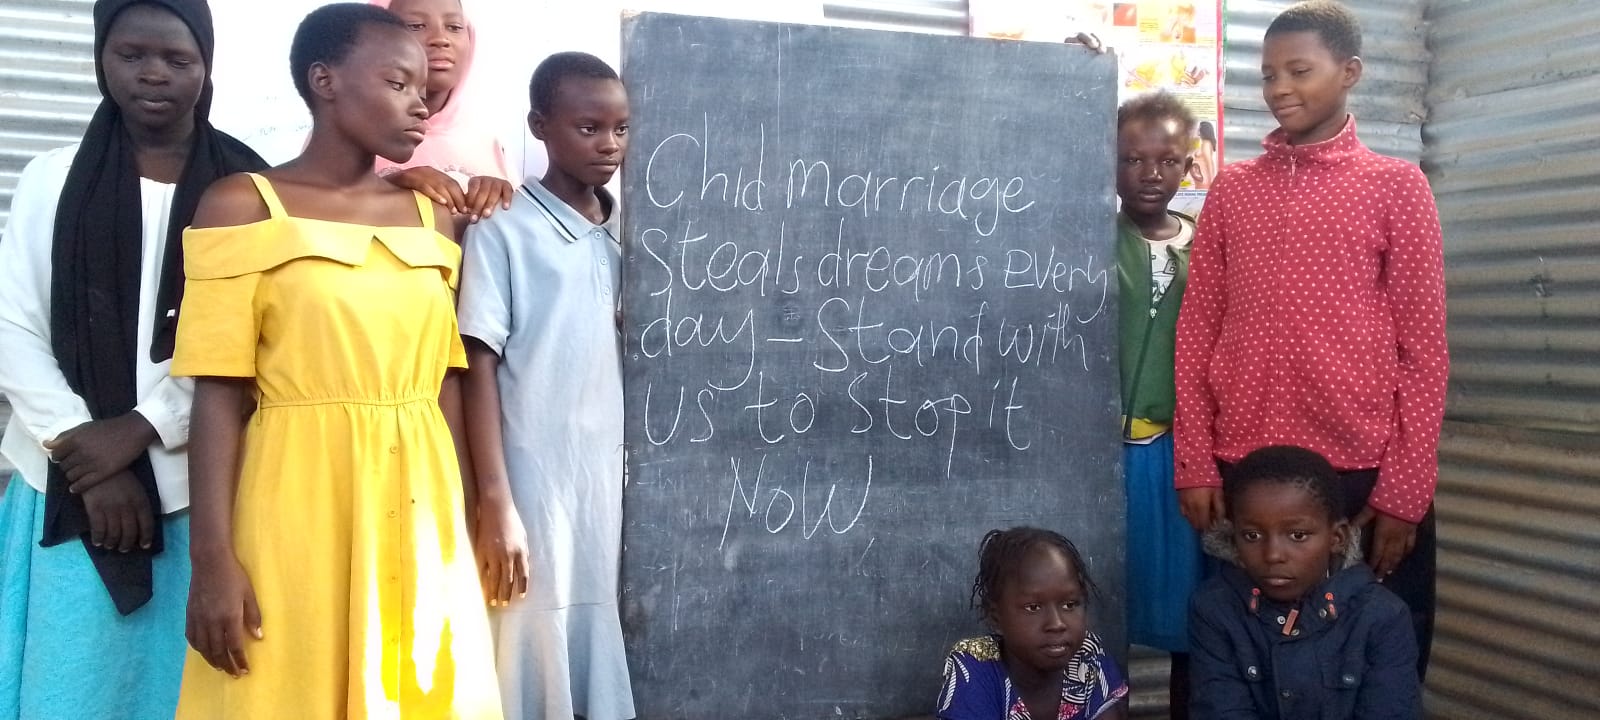 Child marriage
steals dreams every
day - Stand with
us to stop it
NOW